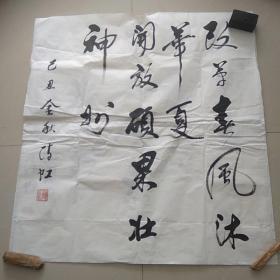 改革春风沐
華夏
開放碩果壮
神州
己丑金秋